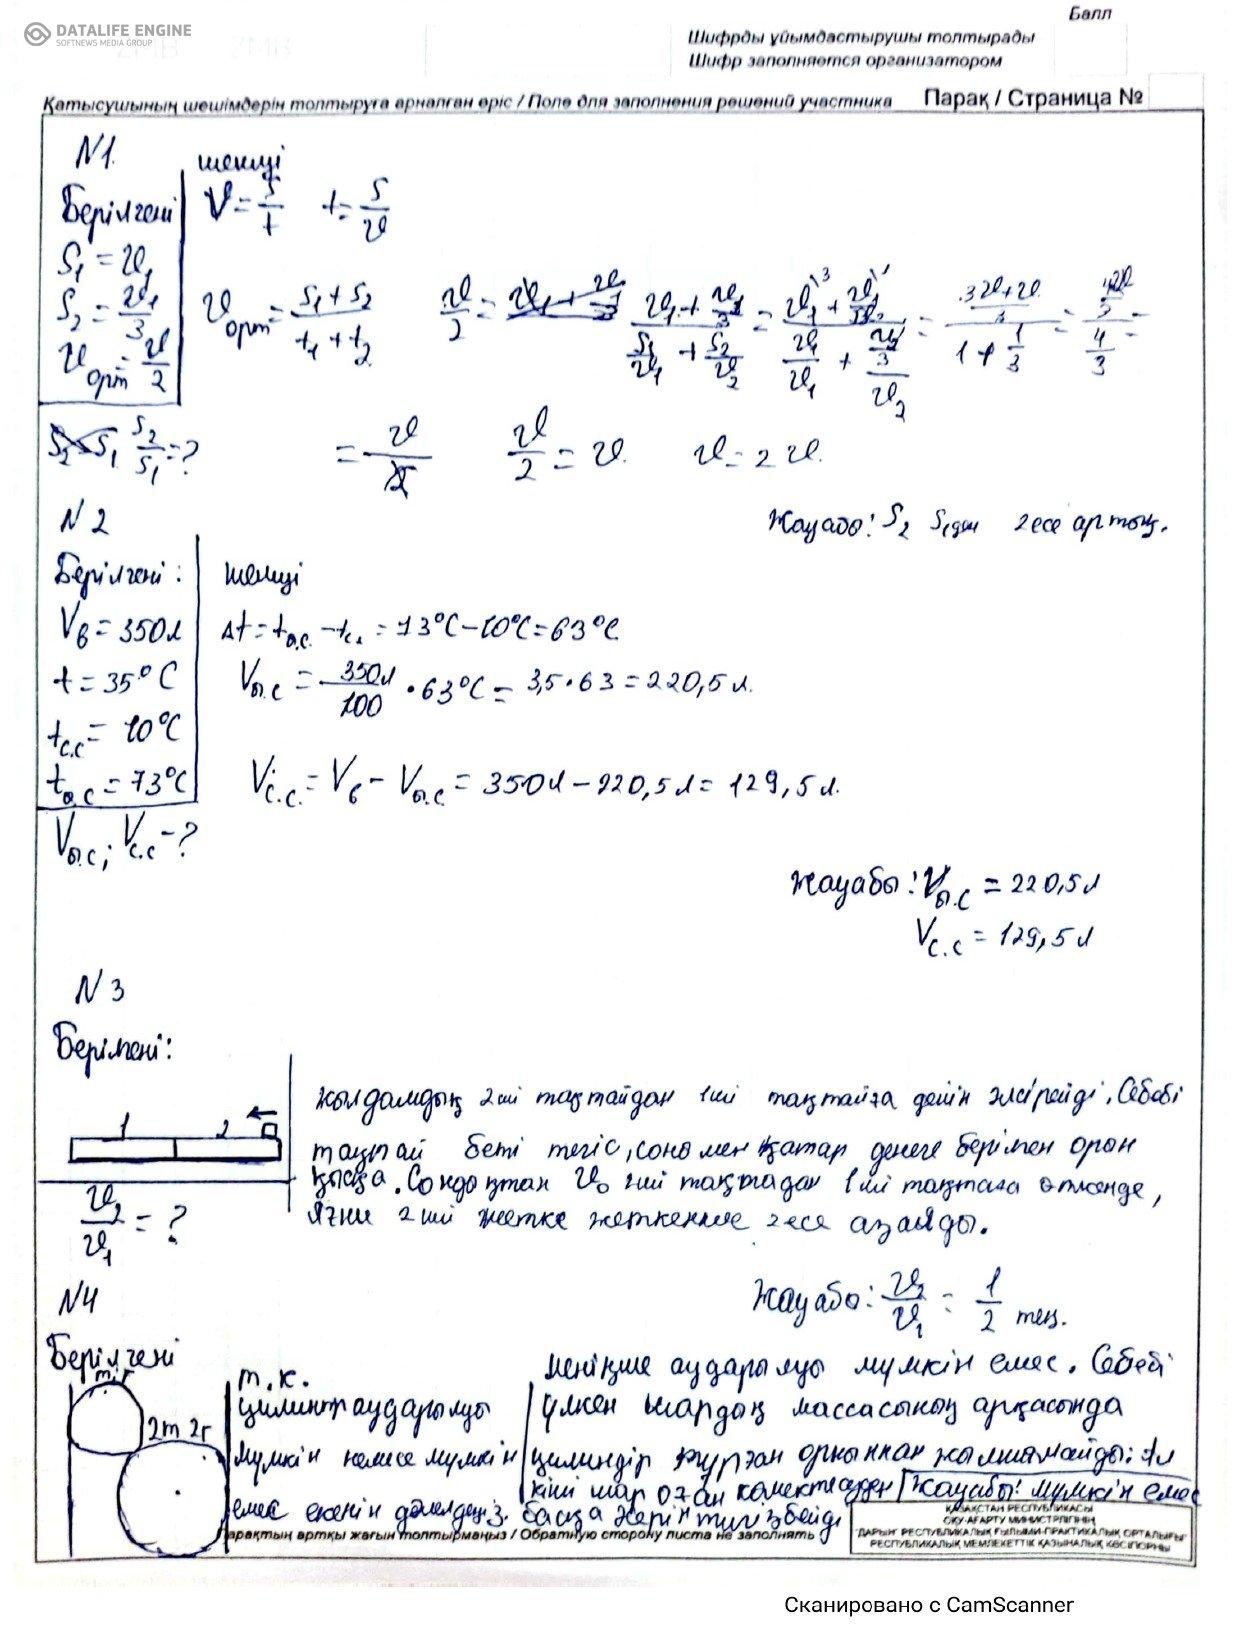 DATALIFE ENGINE
SOFTNEWS MEDIA GROUP
Балл
Шифрды ұйымдастырушы толтырады
Шифр заполняется организатором
Қатысушының шешімдерін толтыруға арналған өріс / Поле для заполнения решений участника
Парақ / Страница №
N1.
шешуі
Берілгені
V = S/t t = S/v
S₁ = v₁
S₂ = v₁/3
v орт = v/2
v орт = (S₁ + S₂)/(t₁ + t₂)
S₂/S₁ = ?
v/2 = v v = 2v.
Жауабы: S₂ S₁ден 2 есе артық.
N2
Берілгені:
шешуі
Vв = 350л
Δt = tы.с. – tс.с = 73°C – 10°C = 63°C
t = 35°C
Vы.с = 350л/100 · 63°C = 3,5 · 63 = 220,5 л.
tс.с = 10°C
tы.с = 73°C
Vс.с. = Vв – Vы.с. = 350л – 220,5л = 129,5л.
Vы.с; Vс.с – ?
Жауабы: Vы.с = 220,5л
Vс.с = 129,5л
N3
Берілгені:
1 2
жылдамдық 2ші тақтайдан 1ші тақтайға дейін әлсірейді. Себебі
тақтай беті тегіс, сонымен қатар денеге берілген орын
қысқа. Сондықтан v₀ 2ші тақтадан 1ші тақтаға өткенде,
яғни 2ші жетке жеткенше 2 есе азаяды.
v₂/v₁ = ?
Жауабы: v₂/v₁ = 1/2 тең.
N4
Берілгені
m, r
2m 2r
т.к.
цилиндр аударылуы
мүмкін немесе мүмкін
емес екенін дәлелдеңіз.
менінше аударылуы мүмкін емес. Себебі
үлкен шардың массасының арқасында
цилиндр тұрған орнынан жылжымайды. Ал
кіші шар оған көмектеседі
басқа жерін тигізбейді
Жауабы: мүмкін емес
Парақтың артқы жағын толтырмаңыз / Обратную сторону листа не заполнять
ҚАЗАҚСТАН РЕСПУБЛИКАСЫ
ОҚУ-АҒАРТУ МИНИСТРЛІГІНІҢ
"ДАРЫН" РЕСПУБЛИКАЛЫҚ ҒЫЛЫМИ-ПРАКТИКАЛЫҚ ОРТАЛЫҒЫ"
РЕСПУБЛИКАЛЫҚ МЕМЛЕКЕТТІК ҚАЗЫНАЛЫҚ КӘСІПОРНЫ
Сканировано с CamScanner